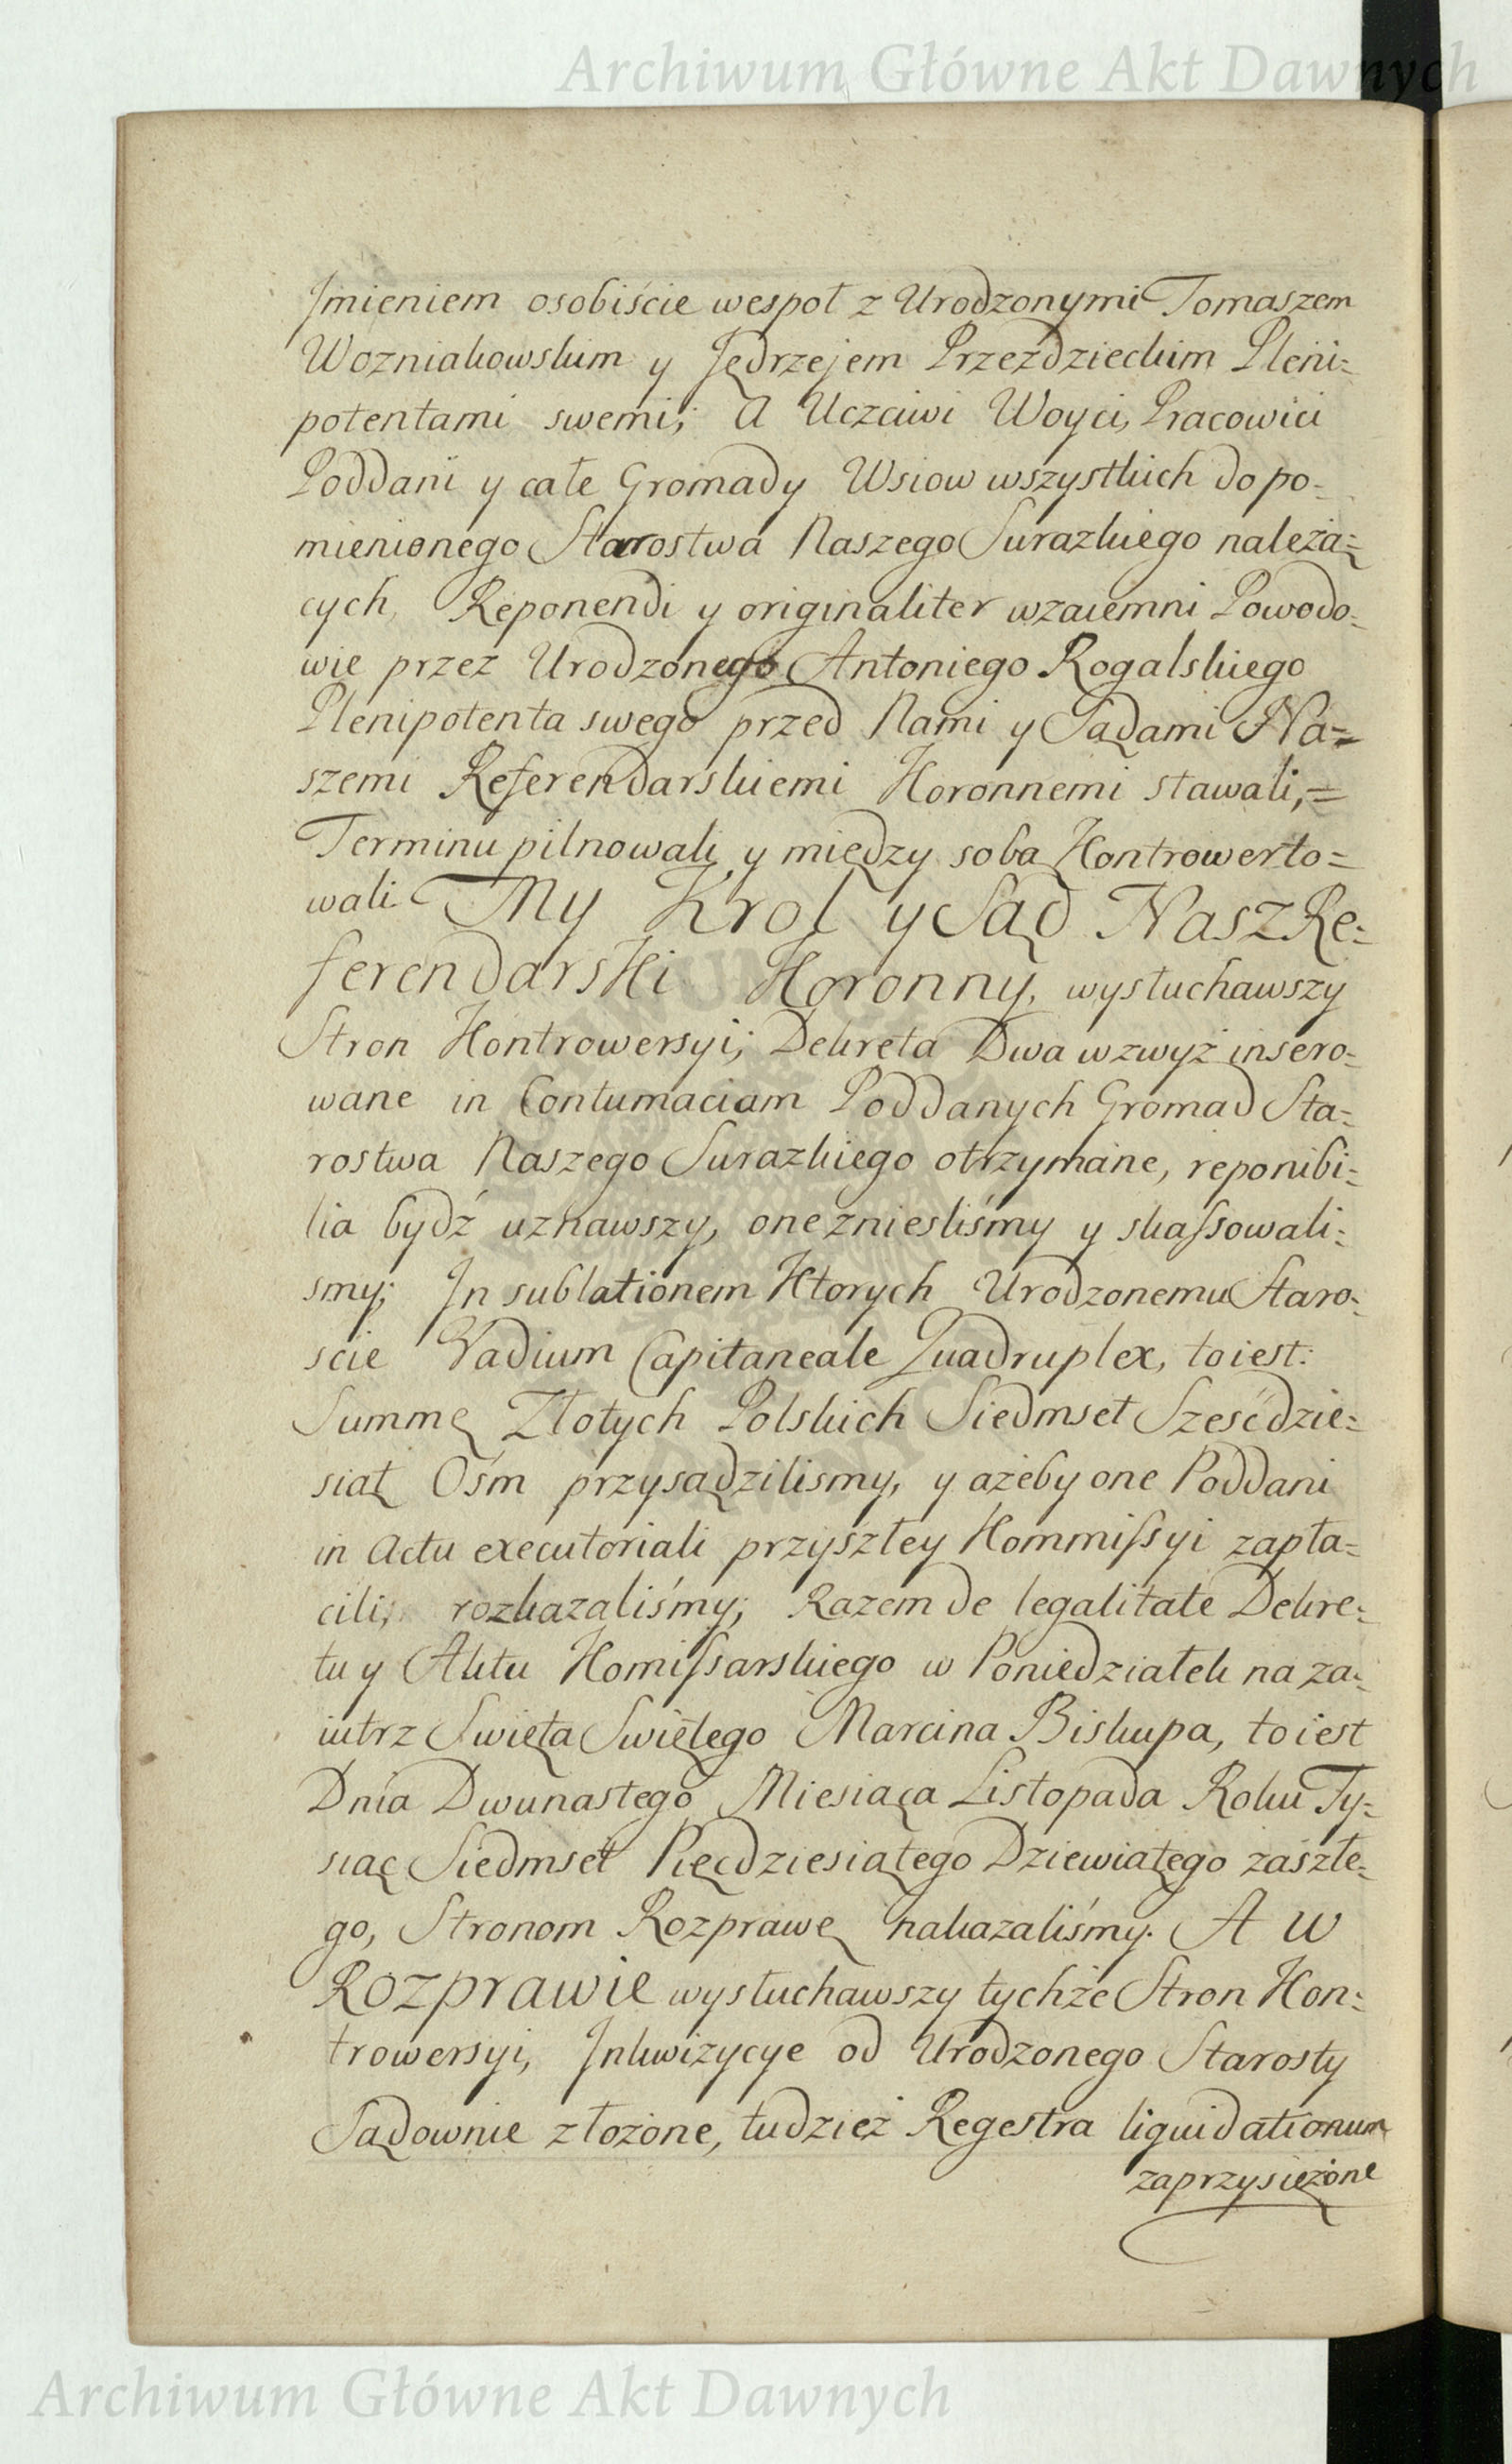 Archiwum Główne Akt Dawnych
Jmieniem osobiście wespoł z Urodzonymi Tomaszem
Wozniakowskim y Jędrzejem Przezdzieckim Pleni=
potentami swemi; A Uczciwi Woyci, Pracowici
Poddani y całe Gromady Wsiow wszystkich do po=
mienionego Starostwa Naszego Surazkiego należą=
cych, Reponendi y originaliter wzaiemni Powodo=
wie przez Urodzonego Antoniego Rogalskiego
Plenipotenta swego przed Nami y Sądami Na=
szemi Referendarskiemi Koronnemi stawali,=
Terminu pilnowali y między sobą Kontrowerto=
wali. My Krol y Sąd Nasz Re=
ferendarski Koronny, wysłuchawszy
Stron Kontrowersyi; Dekreta Dwa wzwyż insero=
wane in Contumaciam Poddanych Gromad Sta=
rostwa Naszego Surazkiego otrzymane, reponibi=
lia bydź uznawszy, one znieśliśmy y skassowali=
smy; In sublationem Ktorych Urodzonemu Staro=
scie Vadium Capitaneale Quadruplex, to iest:
Summę Złotych Polskich Siedmset Sześćdzie=
siąt Ośm przysądzilismy, y ażeby one Poddani
in Actu executoriali przyszłey Kommissyi zapła=
cili, rozkazaliśmy; Razem de legalitate Dekre=
tu y Aktu Komissarskiego w Poniedziałek na za=
iutrz Swięta Swiętego Marcina Biskupa, to iest
Dnia Dwunastego Miesiąca Listopada Roku Ty=
siąc Siedmset Pięćdziesiątego Dziewiątego zaszłe=
go, Stronom Rozprawę nakazaliśmy. A w
Rozprawie wysłuchawszy tychże Stron Kon=
trowersyi, Inkwizycye od Urodzonego Starosty
Sądownie złożone, tudzież Regestra liquidationum
zaprzysiężone
Archiwum Główne Akt Dawnych